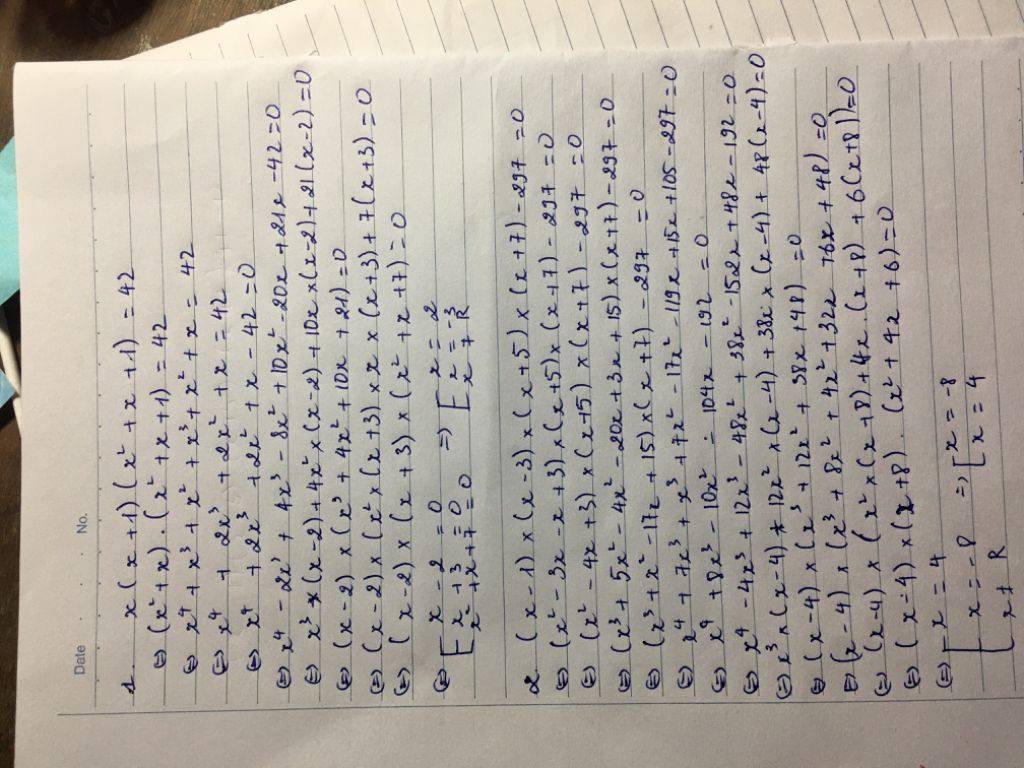 Date . . No.
1. x(x+1)(x²+x+1)=42
⇔ (x²+x).(x²+x+1)=42
⇔ x⁴+x³+x²+x³+x²+x=42
⇔ x⁴+2x³+2x²+x=42
⇔ x⁴+2x³+2x²+x-42=0
⇔ x⁴-2x³+4x³-8x²+10x²-20x+21x-42=0
⇔ x³×(x-2)+4x²×(x-2)+10x×(x-2)+21(x-2)=0
⇔ (x-2)×(x³+4x²+10x+21)=0
⇔ (x-2)×(x²×(x+3)×x×(x+3)+7(x+3)=0
⇔ (x-2)×(x+3)×(x²+x+7)=0
⇔ [ x-2=0 => [ x=2
x+3=0 x=-3
x²+x+7=0 x ≠ R
2. (x-1)×(x-3)×(x+5)×(x+7)-297=0
⇔ (x²-3x-x+3)×(x+5)×(x+7)-297=0
⇔ (x²-4x+3)×(x+5)×(x+7)-297=0
⇔ (x³+5x²-4x²-20x+3x+15)×(x+7)-297=0
⇔ (x³+x²-17x+15)×(x+7)-297=0
⇔ x⁴+7x³+x³+7x²-17x²-119x+15x+105-297=0
⇔ x⁴+8x³-10x²-104x-192=0
⇔ x⁴-4x³+12x³-48x²+38x²-152x+48x-192=0
⇔ x³×(x-4)+12x²×(x-4)+38x×(x-4)+48(x-4)=0
⇔ (x-4)×(x³+12x²+38x+48)=0
⇔ (x-4)×(x³+8x²+4x²+32x+6x+48)=0
⇔ (x-4)×(x²×(x+8)+4x.(x+8)+6(x+8))=0
⇔ (x-4)×(x+8).(x²+4x+6)=0
⇔ [ x=4 => [ x=-8
x=-8 x=4
x ≠ R